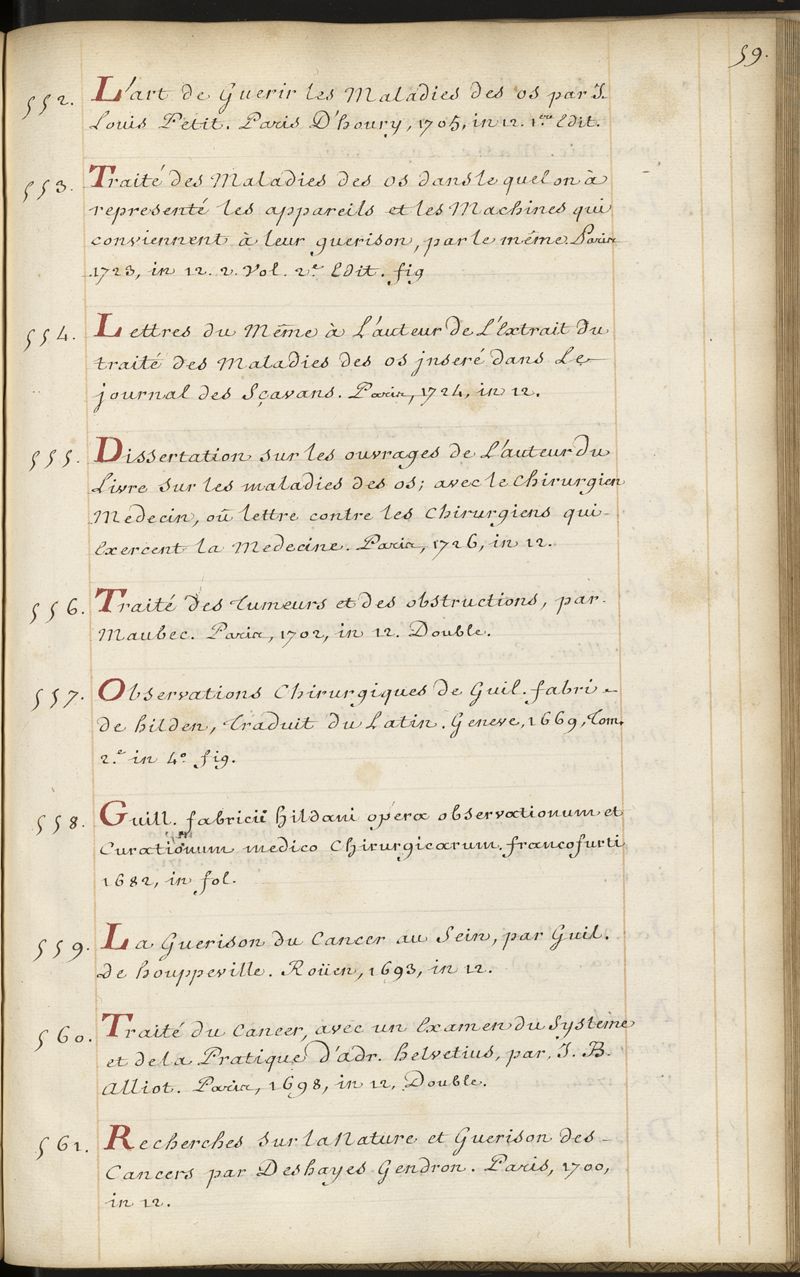 59.
552. L'art de Guerir les Maladies des os par J.
Louis Petit. Paris D'houry, 1705, in 12. 1.ere Edit.
553. Traité des Maladies des os dans le quel on à
representé les appareils et les Machines qui
conviennent à leur guerison, par le même. Paris
1723, in 12. 2. Vol. 2.e Edit. fig
554. Lettres du Même à l'auteur de l'Extrait du
traité des Maladies des os jnseré dans Le
journal des Sçavans. Paris, 1724, in 12.
555. Dissertation sur les ouvrages de l'auteur du
Livre sur les maladies des os; avec le Chirurgien
Medecin, oû lettre contre les Chirurgiens qui
Exercent la Medecine. Paris, 1726, in 12.
556. Traité des Tumeurs et des obstructions, par
Maubec. Paris, 1702, in 12. Double.
557. Observations Chirurgiques de Guil. fabri
de hilden, Traduit du Latin. Geneve, 1669, Tom.
2.e in 4.o fig.
558. Guill. fabricii Hildani opera observationum et
Curationum medico Chirurgicarum. francofurti
1682, in fol.
559. La Guerison du Cancer au Sein, par Guil.
de houppeville. Roüen, 1693, in 12.
560. Traité du Cancer, avec un Examen du Systeme
et de la Pratique d'adr. helvetius, par, J. B.
Alliot. Paris, 1698, in 12, Double.
561. Recherches sur la Nature et Guerison des
Cancers par Deshayes Gendron. Paris, 1700,
in 12.